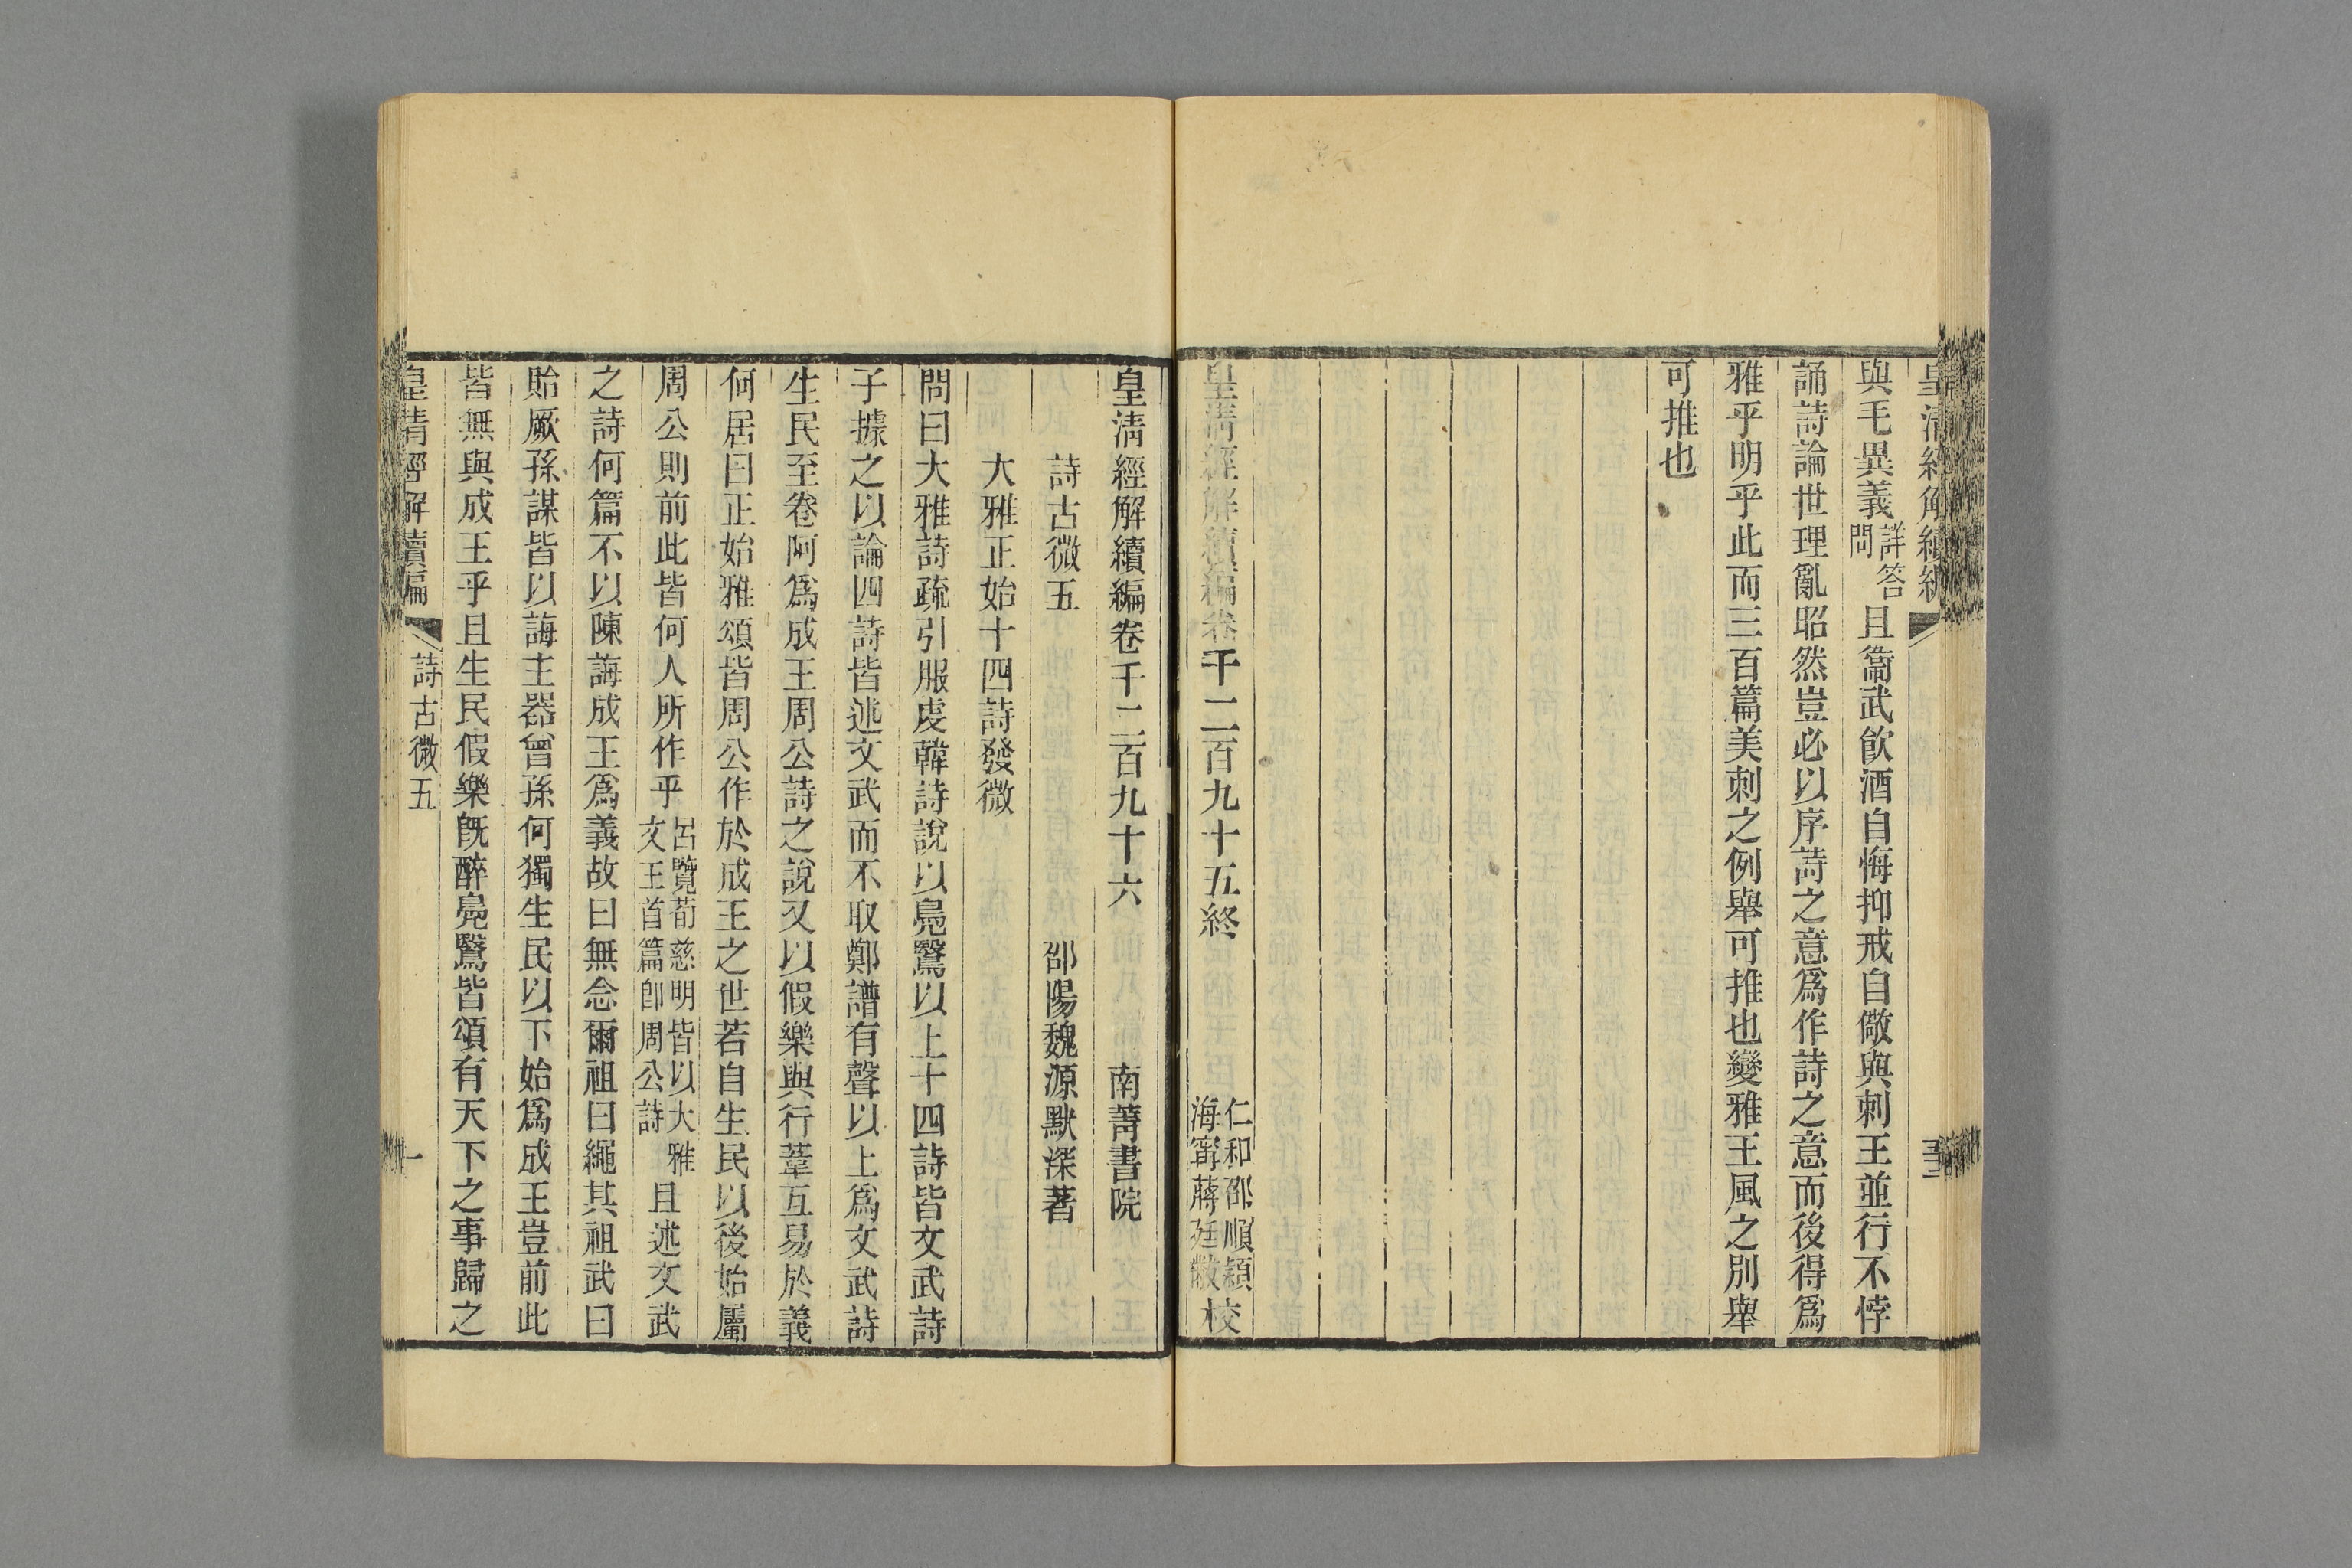 皇清經解續編
與毛異義詳答問且衞武飮酒自悔抑戒自儆與刺王並行不悖
誦詩論世理亂昭然豈必以序詩之意爲作詩之意而後得爲
雅乎明乎此而三百篇美刺之例舉可推也變雅王風之別舉
可推也
皇清經解續編卷千二百九十五終
仁和邵順穎
海寧蔣廷黻校
皇淸經解續編卷千二百九十六
南菁書院
詩古微五
邵陽魏源默深著
大雅正始十四詩發微
問曰大雅詩疏引服虔韓詩說以鳧鷖以上十四詩皆文武詩
子據之以論四詩皆述文武而不取鄭譜有聲以上爲文武詩
生民至卷阿爲成王周公詩之說又以假樂與行葦互易於義
何居曰正始雅頌皆周公作於成王之世若自生民以後始屬
周公則前此皆何人所作乎呂覽荀慈明皆以大雅文王首篇卽周公詩且述文武
之詩何篇不以陳誨成王爲義故曰無念爾祖曰繩其祖武曰
貽厥孫謀皆以誨主器曾孫何獨生民以下始爲成王豈前此
皆無與成王乎且生民假樂旣醉鳧鷖皆頌有天下之事歸之
皇淸經解續編
詩古微五
一